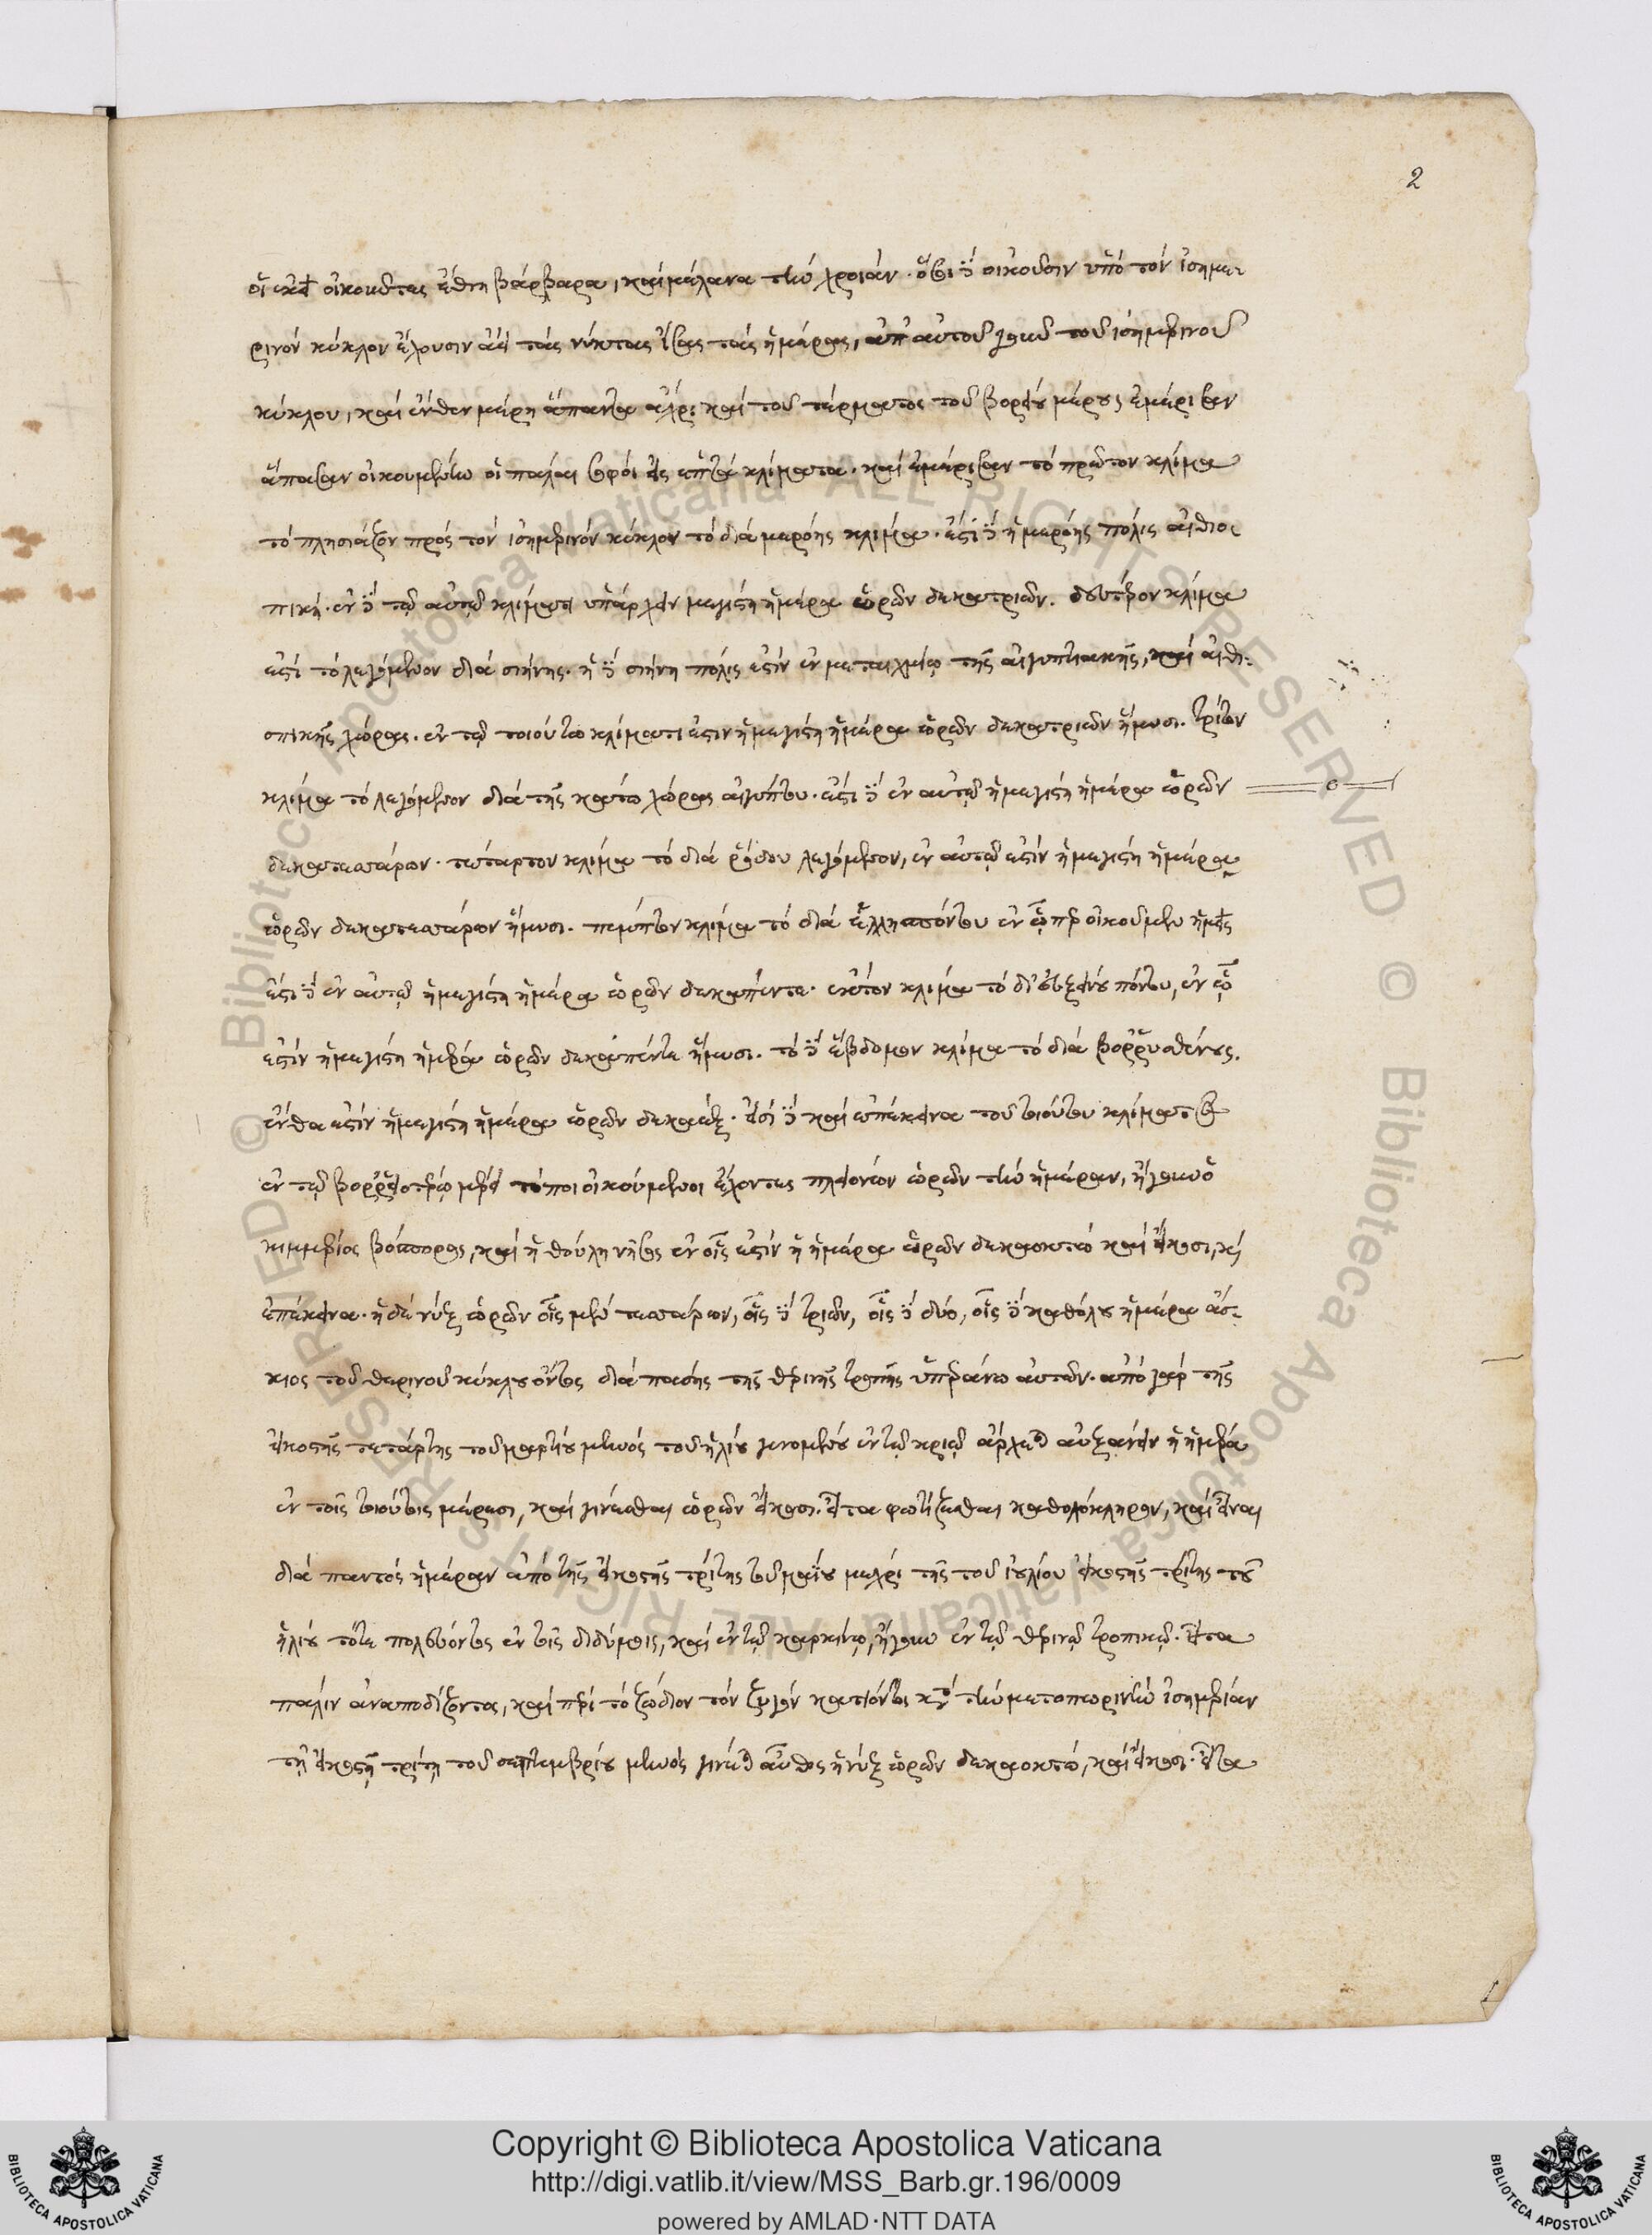 2
οἱ ἐκεῖ οἰκοῦντες ἔθνη βάρβαρα, καὶ μέλανα τὴν χροιάν. ὅσοι δὲ οἰκοῦσιν ὑπὸ τὸν ἰσημε
ρινὸν κύκλον ἔχουσιν ἀεὶ τὰς νύκτας ἴσας ταῖς ἡμέραις, ἀπ' αὐτοῦ γοῦν τοῦ ἰσημερινοῦ
κύκλου, καὶ ἔνθεν μέρη ἅπαντα ἄχρι καὶ τοῦ τέρματος τοῦ βορείου μέρους ἐμέρισαν
ἅπασαν οἰκουμένην οἱ πάλαι σοφοὶ εἰς ἑπτὰ κλίματα. καὶ ἐμέρισαν τὸ πρῶτον κλίμα
τὸ πλησιάζον πρὸς τὸν ἰσημερινὸν κύκλον τὸ διὰ μερόης κλίμα. ἐστὶ δὲ ἡ μερόης πόλις αἰθιο
πική. ἐν δὲ τῷ αὐτῷ κλίματι ὑπάρχειν μεγίστη ἡμέρα ὡρῶν δεκατριῶν. δεύτερον κλίμα
ἐστὶ τὸ λεγόμενον διὰ σήνης. ἡ δὲ σήνη πόλις ἐστὶν ἐν μεταιχμίῳ τῆς αἰγυπτιακῆς, καὶ αἰθι
οπικῆς χώρας. ἐν τῷ τοιούτω κλίματι ἐστιν ἡ μεγίστη ἡμέρα ὡρῶν δεκατριῶν ἥμισυ. τρίτον
κλίμα τὸ λεγόμενον διὰ τῆς κάτω χώρας αἰγύπτου. ἐστὶ δὲ ἐν αὐτῷ ἡ μεγίστη ἡμέρα ὡρῶν
δεκατεσσάρων. τέταρτον κλίμα τὸ διὰ ῥόδου λεγόμενον, ἐν αὐτῷ ἐστὶν ἡ μεγίστη ἡμέρα
ὡρῶν δεκατεσσάρων ἥμισυ. πέμπτον κλίμα τὸ διὰ ἑλλησπόντου ἐν ᾧπερ οἰκοῦμεν ἡμεῖς
ἐστὶ δὲ ἐν αὐτῷ ἡ μεγίστη ἡμέρα ὡρῶν δεκαπέντε. ἕκτον κλίμα τὸ δι' εὐξείνου πόντου, ἐν ᾧ
ἐστὶν ἡ μεγίστη ἡμέρα ὡρῶν δεκαπέντε ἥμισυ. τὸ δὲ ἕβδομον κλίμα τὸ διὰ βορρυσθένους.
ἔνθα ἐστὶν ἡ μεγίστη ἡμέρα ὡρῶν δεκαέξ. εἰσὶ δὲ καὶ ἐπέκεινα τοῦ τοιούτου κλίματος
ἐν τῷ βορρειοτέρῳ μέρει τόποι οἰκούμενοι ἔχοντες πλειόνων ὡρῶν τὴν ἡμέραν, ἤγουν ὁ
κιμμέριος βόσπορος, καὶ ἡ θούλη νῆσος ἐν οἷς ἐστὶν ἡ ἡμέρα ὡρῶν δεκαοκτὼ καὶ εἴκοσι, καὶ
ἐπέκεινα. ἡ δὲ νὺξ ὡρῶν οἷς μὲν τεσσάρων, οἷς δὲ τριῶν, οἷς δὲ δύο, οἷς δὲ καθόλου ἡμέρα ἄσ
κιος τοῦ θερινοῦ κύκλου ὄντος διὰ πάσης τῆς θερινῆς τροπῆς ὑπεράνω αὐτῶν. ἀπὸ γὰρ τῆς
εἰκοστῆς τετάρτης τοῦ μαρτίου μηνὸς τοῦ ἡλίου γινομένου ἐν τῷ κριῷ ἄρχεται αὐξάνειν ἡ ἡμέρα
ἐν τοῖς τοιούτοις μέρεσι, καὶ γίνεσθαι ὡρῶν εἴκοσι. εἶτα φωτίζεσθαι καθολόκληρον, καὶ εἶναι
διὰ παντὸς ἡμέραν ἀπὸ τῆς εἰκοστῆς τρίτης τοῦ μαΐου μέχρι τῆς τοῦ ἰουλίου εἰκοστῆς τρίτης τοῦ
ἡλίου τότε πολεύοντος ἐν τοῖς διδύμοις, καὶ ἐν τῷ καρκίνῳ, ἤγουν ἐν τῷ θερινῷ τροπικῷ. εἶτα
πάλιν ἀναποδίζοντα, καὶ περὶ τὸ ζώδιον τὸν ζυγὸν κατιόντος κατὰ τὴν μετοπωρινὴν ἰσημερίαν
τῇ εἰκοστῇ τρίτῃ τοῦ σεπτεμβρίου μηνὸς γίνεται αὖθις ἡ νὺξ ὡρῶν δεκαοκτώ, καὶ εἴκοσι. εἶτα
Copyright © Biblioteca Apostolica Vaticana
http://digi.vatlib.it/view/MSS_Barb.gr.196/0009
powered by AMLAD·NTT DATA
BIBLIOTECA APOSTOLICA VATICANA
BIBLIOTECA APOSTOLICA VATICANA
© Biblioteca Apostolica Vaticana ALL RIGHTS RESERVED © Biblioteca Apostolica Vaticana ALL RIGHTS RESERVED